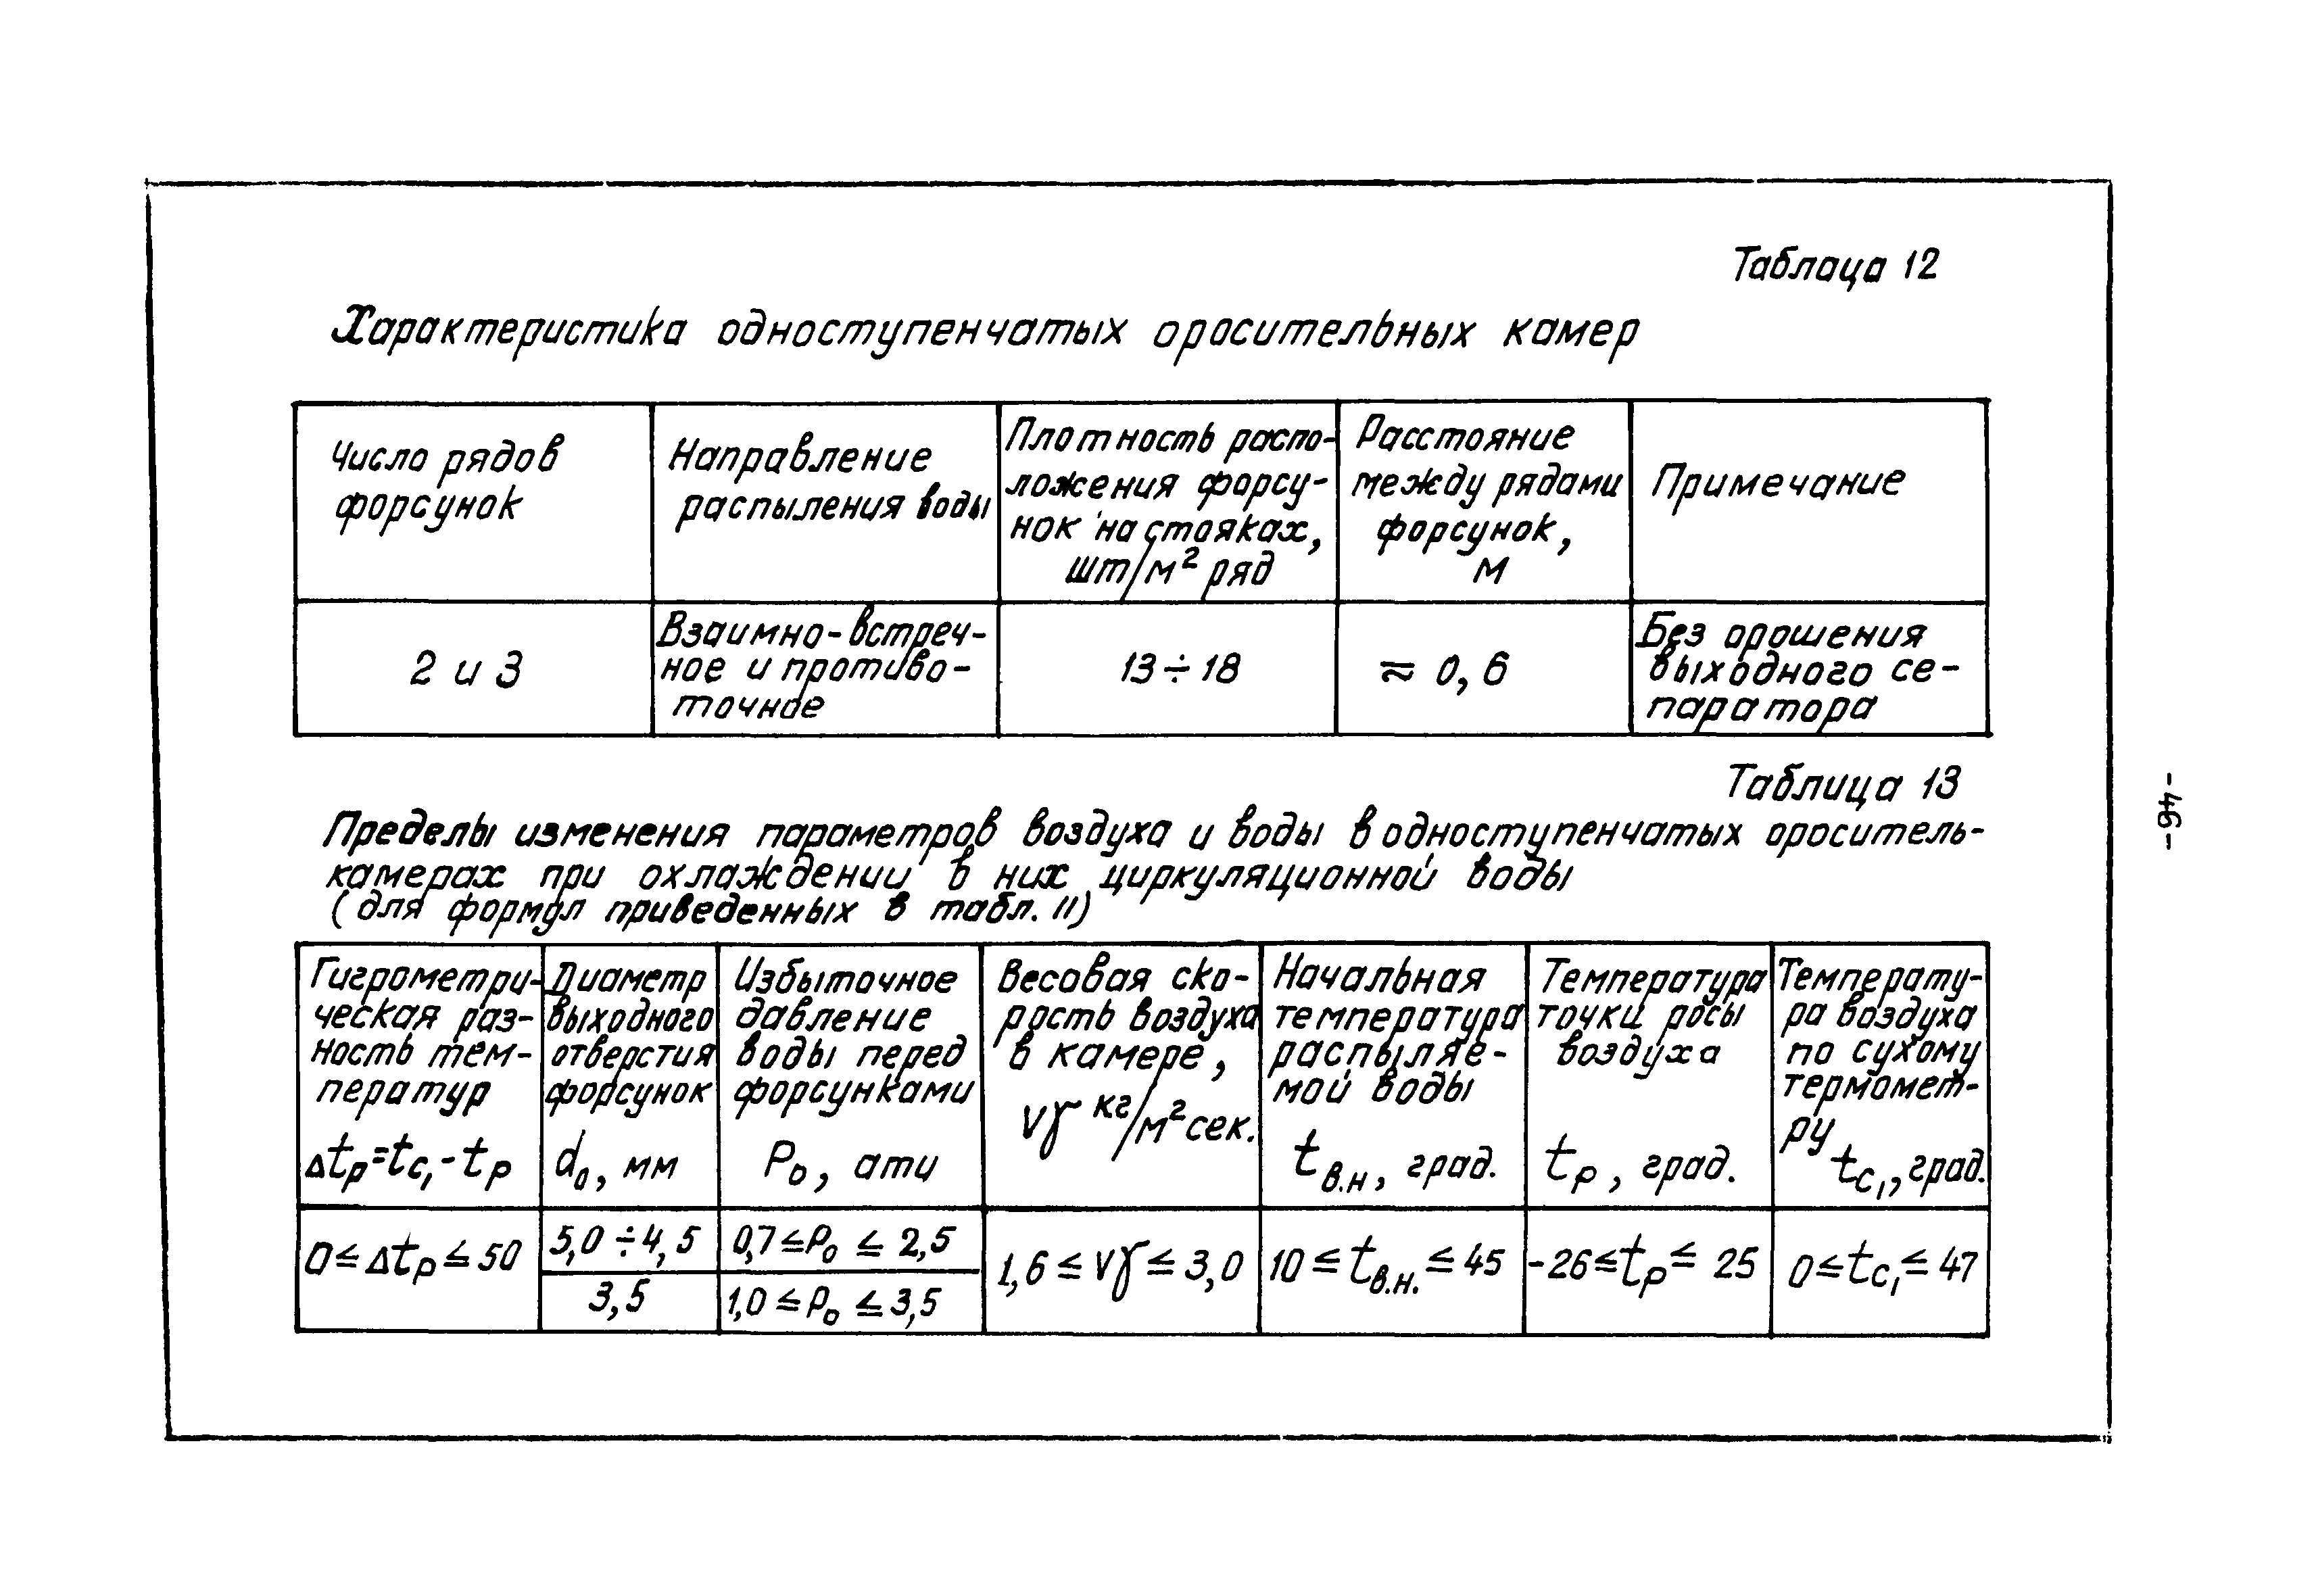 Таблица 12
Характеристика одноступенчатых оросительных камер
Число рядов
форсунок
Направление
распыления воды
Плотность распо-
ложения форсу-
нок на стояках,
шт/м² ряд
Расстояние
между рядами
форсунок,
м
Примечание
2 и 3
Взаимно-встреч-
ное и противо-
точное
13÷18
≈ 0,6
Без орошения
выходного се-
паратора
Таблица 13
Пределы изменения параметров воздуха и воды в одноступенчатых ороситель-
камерах при охлаждении в них циркуляционной воды
(для формул приведенных в табл. 11)
Гигрометри-
ческая раз-
ность тем-
ператур
Δtр=tс₁-tр
Диаметр
выходного
отверстия
форсунок
d₀, мм
Избыточное
давление
воды перед
форсунками
P₀, ати
Весовая ско-
рость воздуха
в камере,
vγ кг/м² сек.
Начальная
температура
распыляе-
мой воды
tв.н, град.
Температура
точки росы
воздуха
tр, град.
Температу-
ра воздуха
по сухому
термомет-
ру
tс₁, град.
0≤Δtр≤50
5,0÷4,5
3,5
0,7≤P₀≤2,5
1,0≤P₀≤3,5
1,6≤vγ≤3,0
10≤tв.н.≤45
-26≤tр≤25
0≤tс₁≤47
-46-